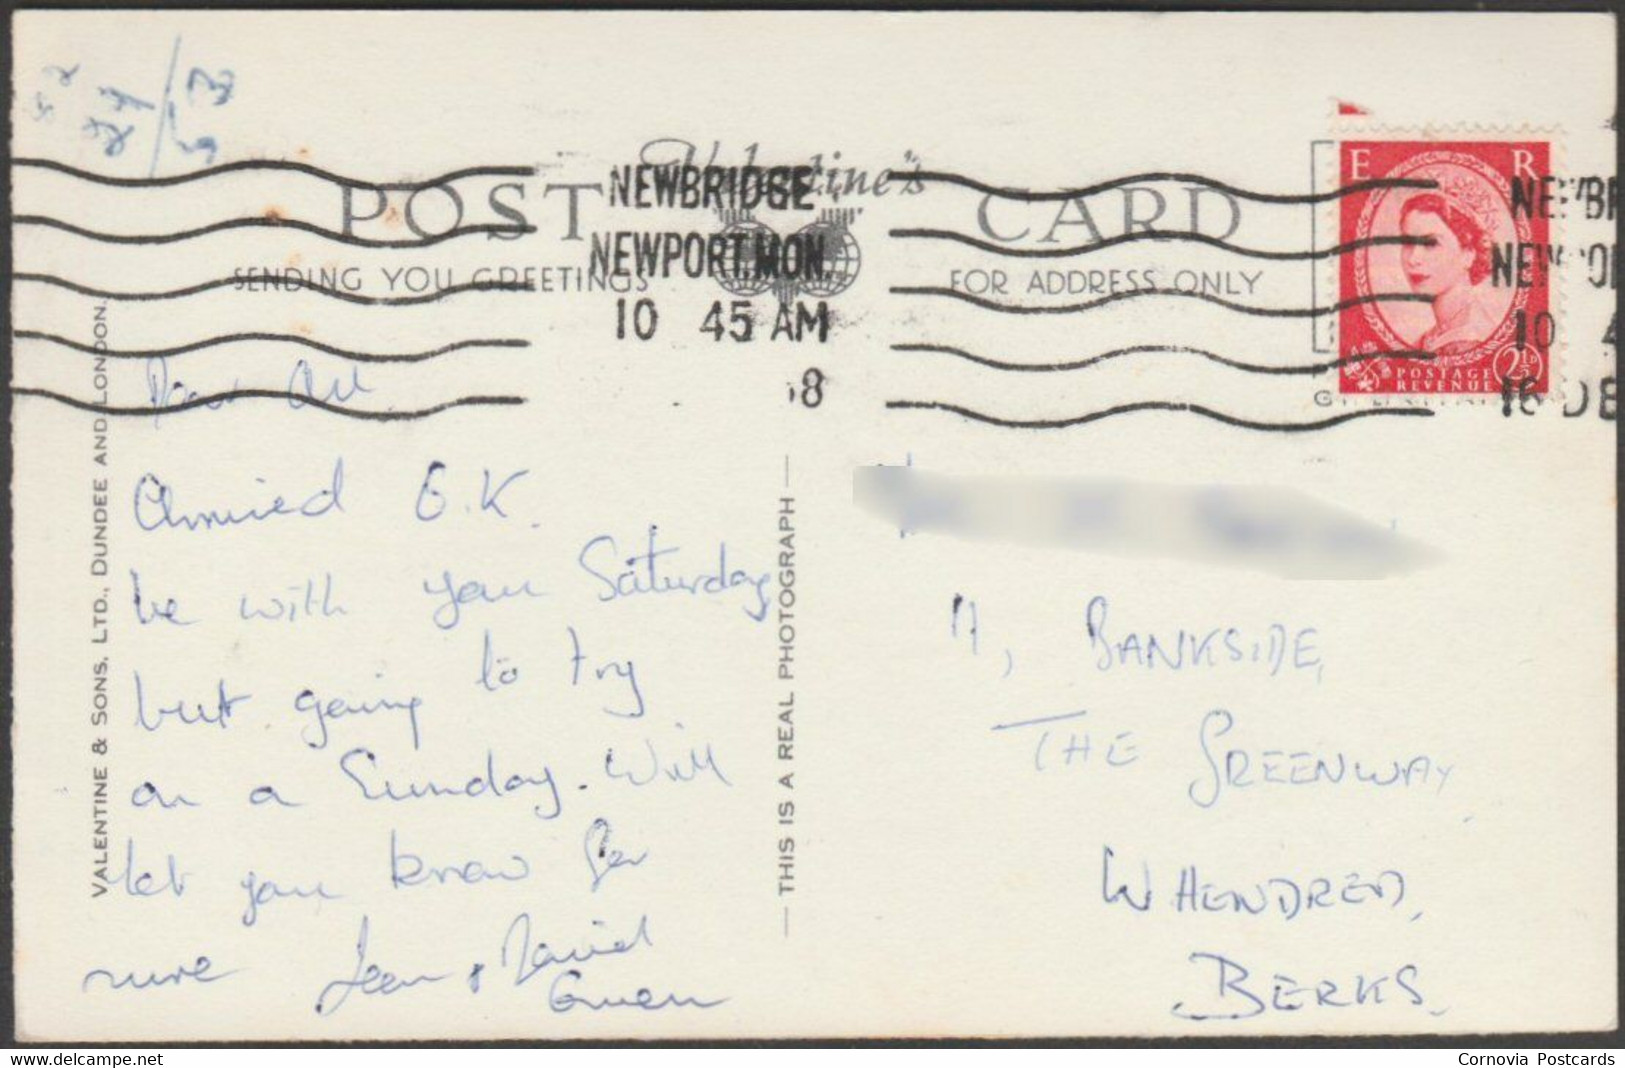 Valentine's
POST CARD
SENDING YOU GREETINGS
FOR ADDRESS ONLY
NEWBRIDGE
NEWPORT, MON.
10 45 AM
E R
POSTAGE
REVENUE
2½D
NEWBR
10 4
16 DE
VALENTINE & SONS, LTD., DUNDEE AND LONDON.
— THIS IS A REAL PHOTOGRAPH —
Dear All
Arrived O.K.
be with you Saturday
but going to try
on a Sunday. Will
let you know for
sure Jean & David
Gwen
BANKSIDE,
THE GREENWAY
W HENDRED,
BERKS.
Cornovia Postcards